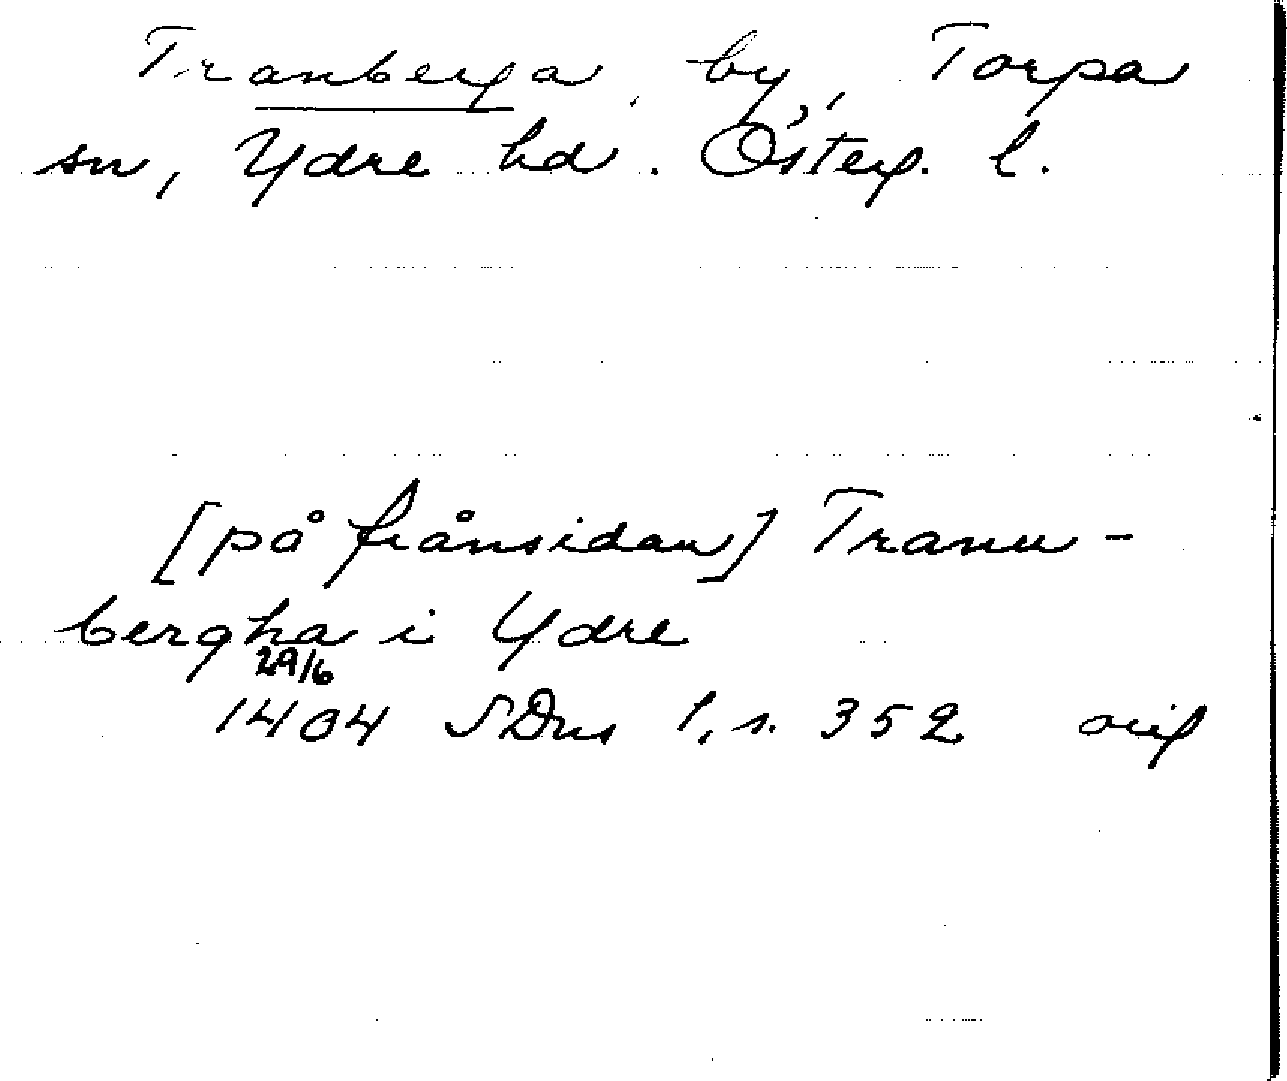 Tranberga, by, Torpa
sn, Ydre hd. Österg. l.
[på frånsidan] Tranu-
bergha i Ydre
29/6
1404 SDns 1, s. 352 orig